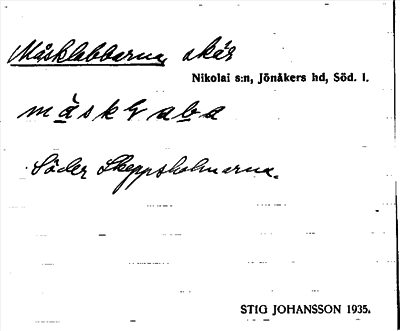 Måsklabbarna, skär
Nikolai s:n, Jönåkers hd, Söd. l.
Söder Skeppsholmarna.
STIG JOHANSSON 1935.